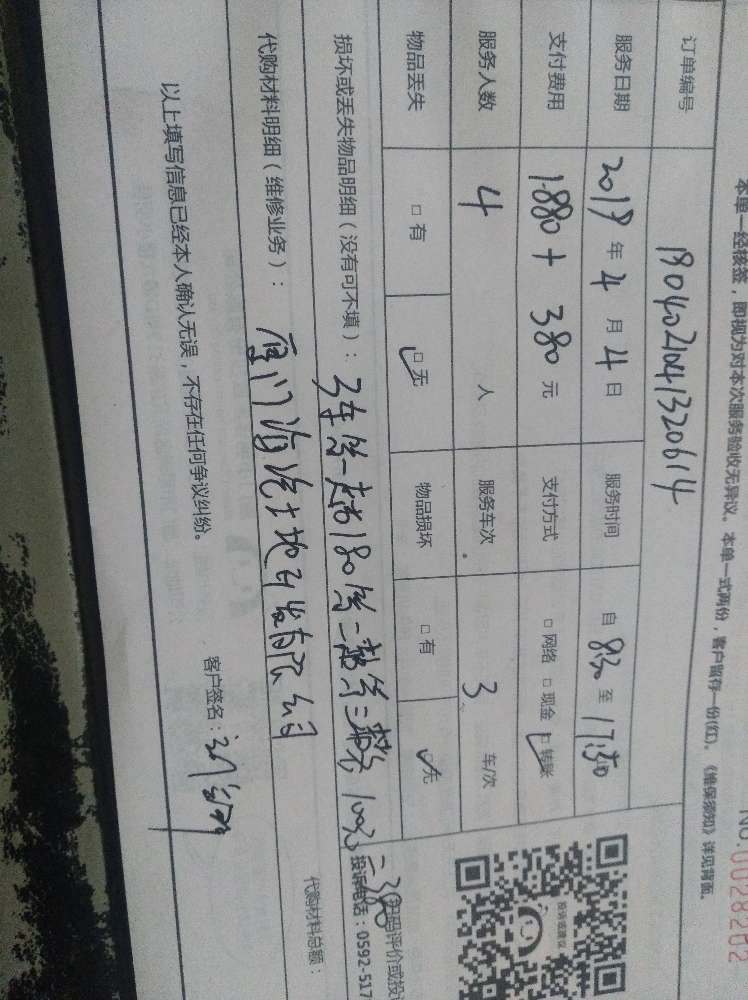 本单一经核签，即视为对本次服务验收无异议。本单一式两份，客户留存一份(红)。《维保须知》详见背面。
NO.0028202
订单编号 1804021041320614
服务日期 2018年4月4日 服务时间 自 8:30 至 17:30
支付费用 1880+380元 支付方式 □网络 □现金 □转账
服务人数 4 人 服务车次 3 车/次
物品丢失 □有 □无 物品损坏 □有 □无
损坏或丢失物品明细（没有可不填）： 3车第一趟180第二趟第三趟100=380
代购材料明细（维修业务）： 厦门 土地开发有限公司
代购材料总额：
以上填写信息已经本人确认无误，不存在任何争议纠纷。
客户签名：
投诉或建议
扫码评价或投
投诉电话：0592-517